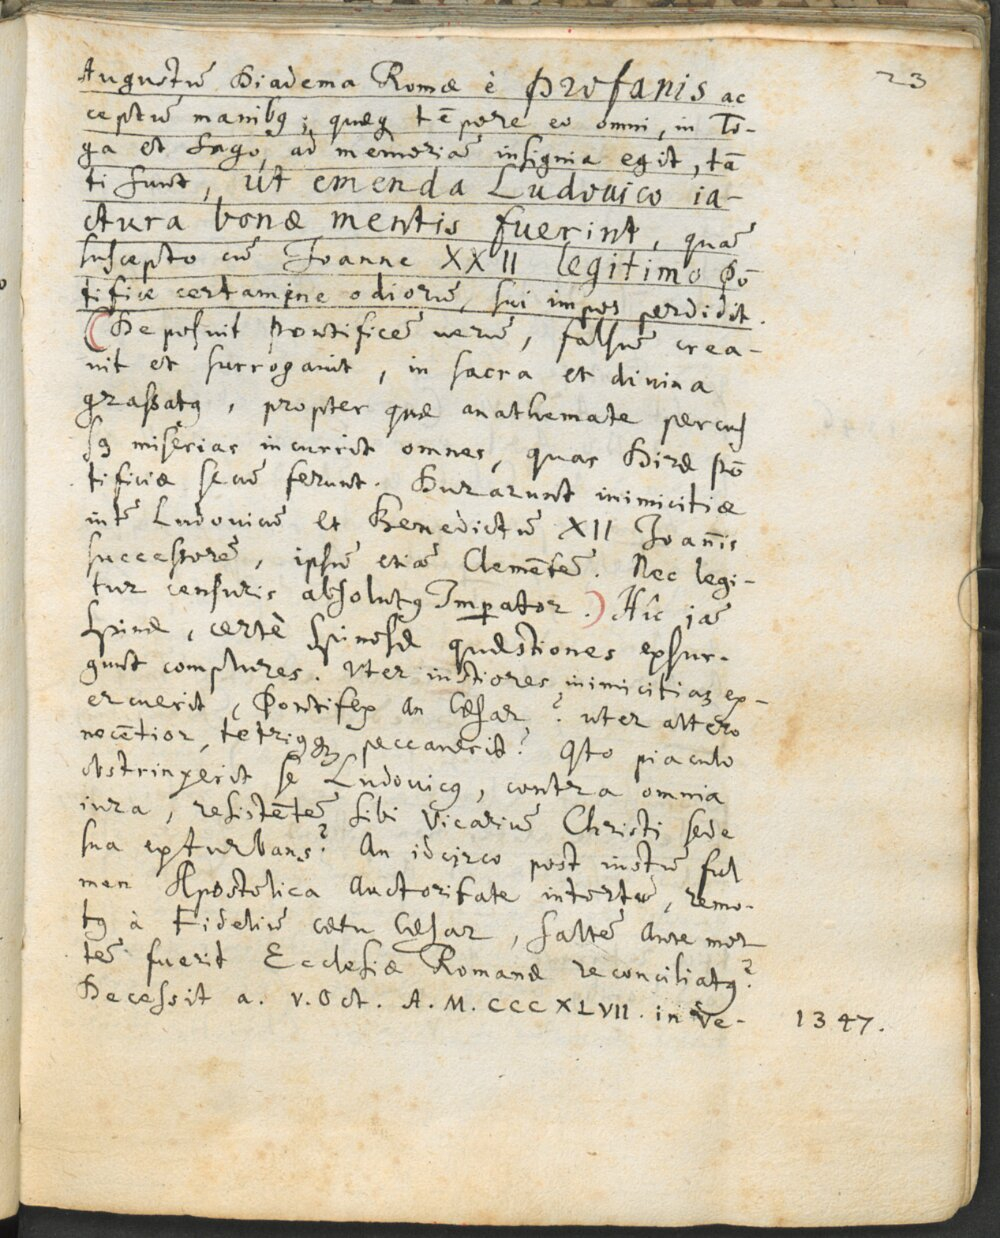 23
Augustū Diadema Romæ è Profanis ac
ceptū manibꝰ; quæq tēpore eo omni, in To-
ga et Sago, ad memoriā insignia egit, tā
ti sunt, ut emenda Ludouico ia-
ctura bonæ mentis fuerint, quā
suscepto cū Joanne XXII legitimo Pō
tifice certamine odiorū, sui impos perdidit.
(Deposuit Pontificē uerū, falsū crea-
uit et surrogauit, in sacra et diuina
grassatꝰ, propter quæ anathemate percus
sꝰ miserias incurrit omnes, quas Diræ Pō
tificiæ secū ferunt. Durarunt inimicitiæ
intē Ludouicū et Benedictū XII Joan̄is
successorē, ipsū etiā Clemētē. Nec legi-
tur censuris absolutꝰ Imperator.) Hic iā
spinæ, certè spinosæ quæstiones exsur-
gunt complures. Vter iustiores inimicitias ex-
ercuerit, Pontifex an Cæsar? uter altero
nocētior, tetriusq peccauerit? Qto piaculo
obstrinxerit se Ludouicꝰ, contra omnia
iura, resistētē sibi Vicariū Christi sede
sua exturbans? An idcirco post iustū ful
men Apostolica Auctoritate intortū, remo-
tꝰ à Fideliū cœtu Cæsar, saltē ante mor
tē fuerit Ecclesiæ Romanæ reconciliatꝰ?
Decessit a. V. Oct. A. M. CCCXLVII. in Ve-
1347.